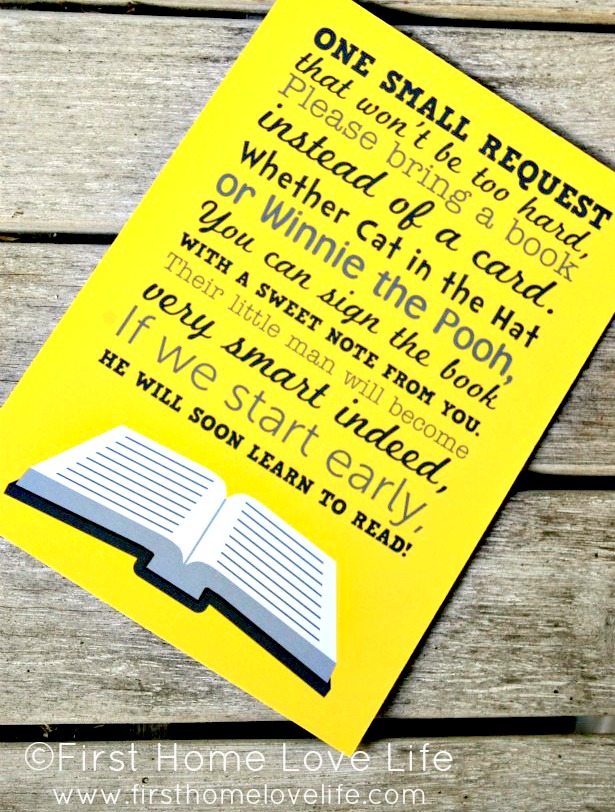 ONE SMALL REQUEST
that won't be too hard,
Please bring a book
instead of a card.
Whether Cat in the Hat
or Winnie the Pooh,
You can sign the book
WITH A SWEET NOTE FROM YOU.
Their little man will become
very smart indeed,
If we start early,
HE WILL SOON LEARN TO READ!
©First Home Love Life
www.firsthomelovelife.com